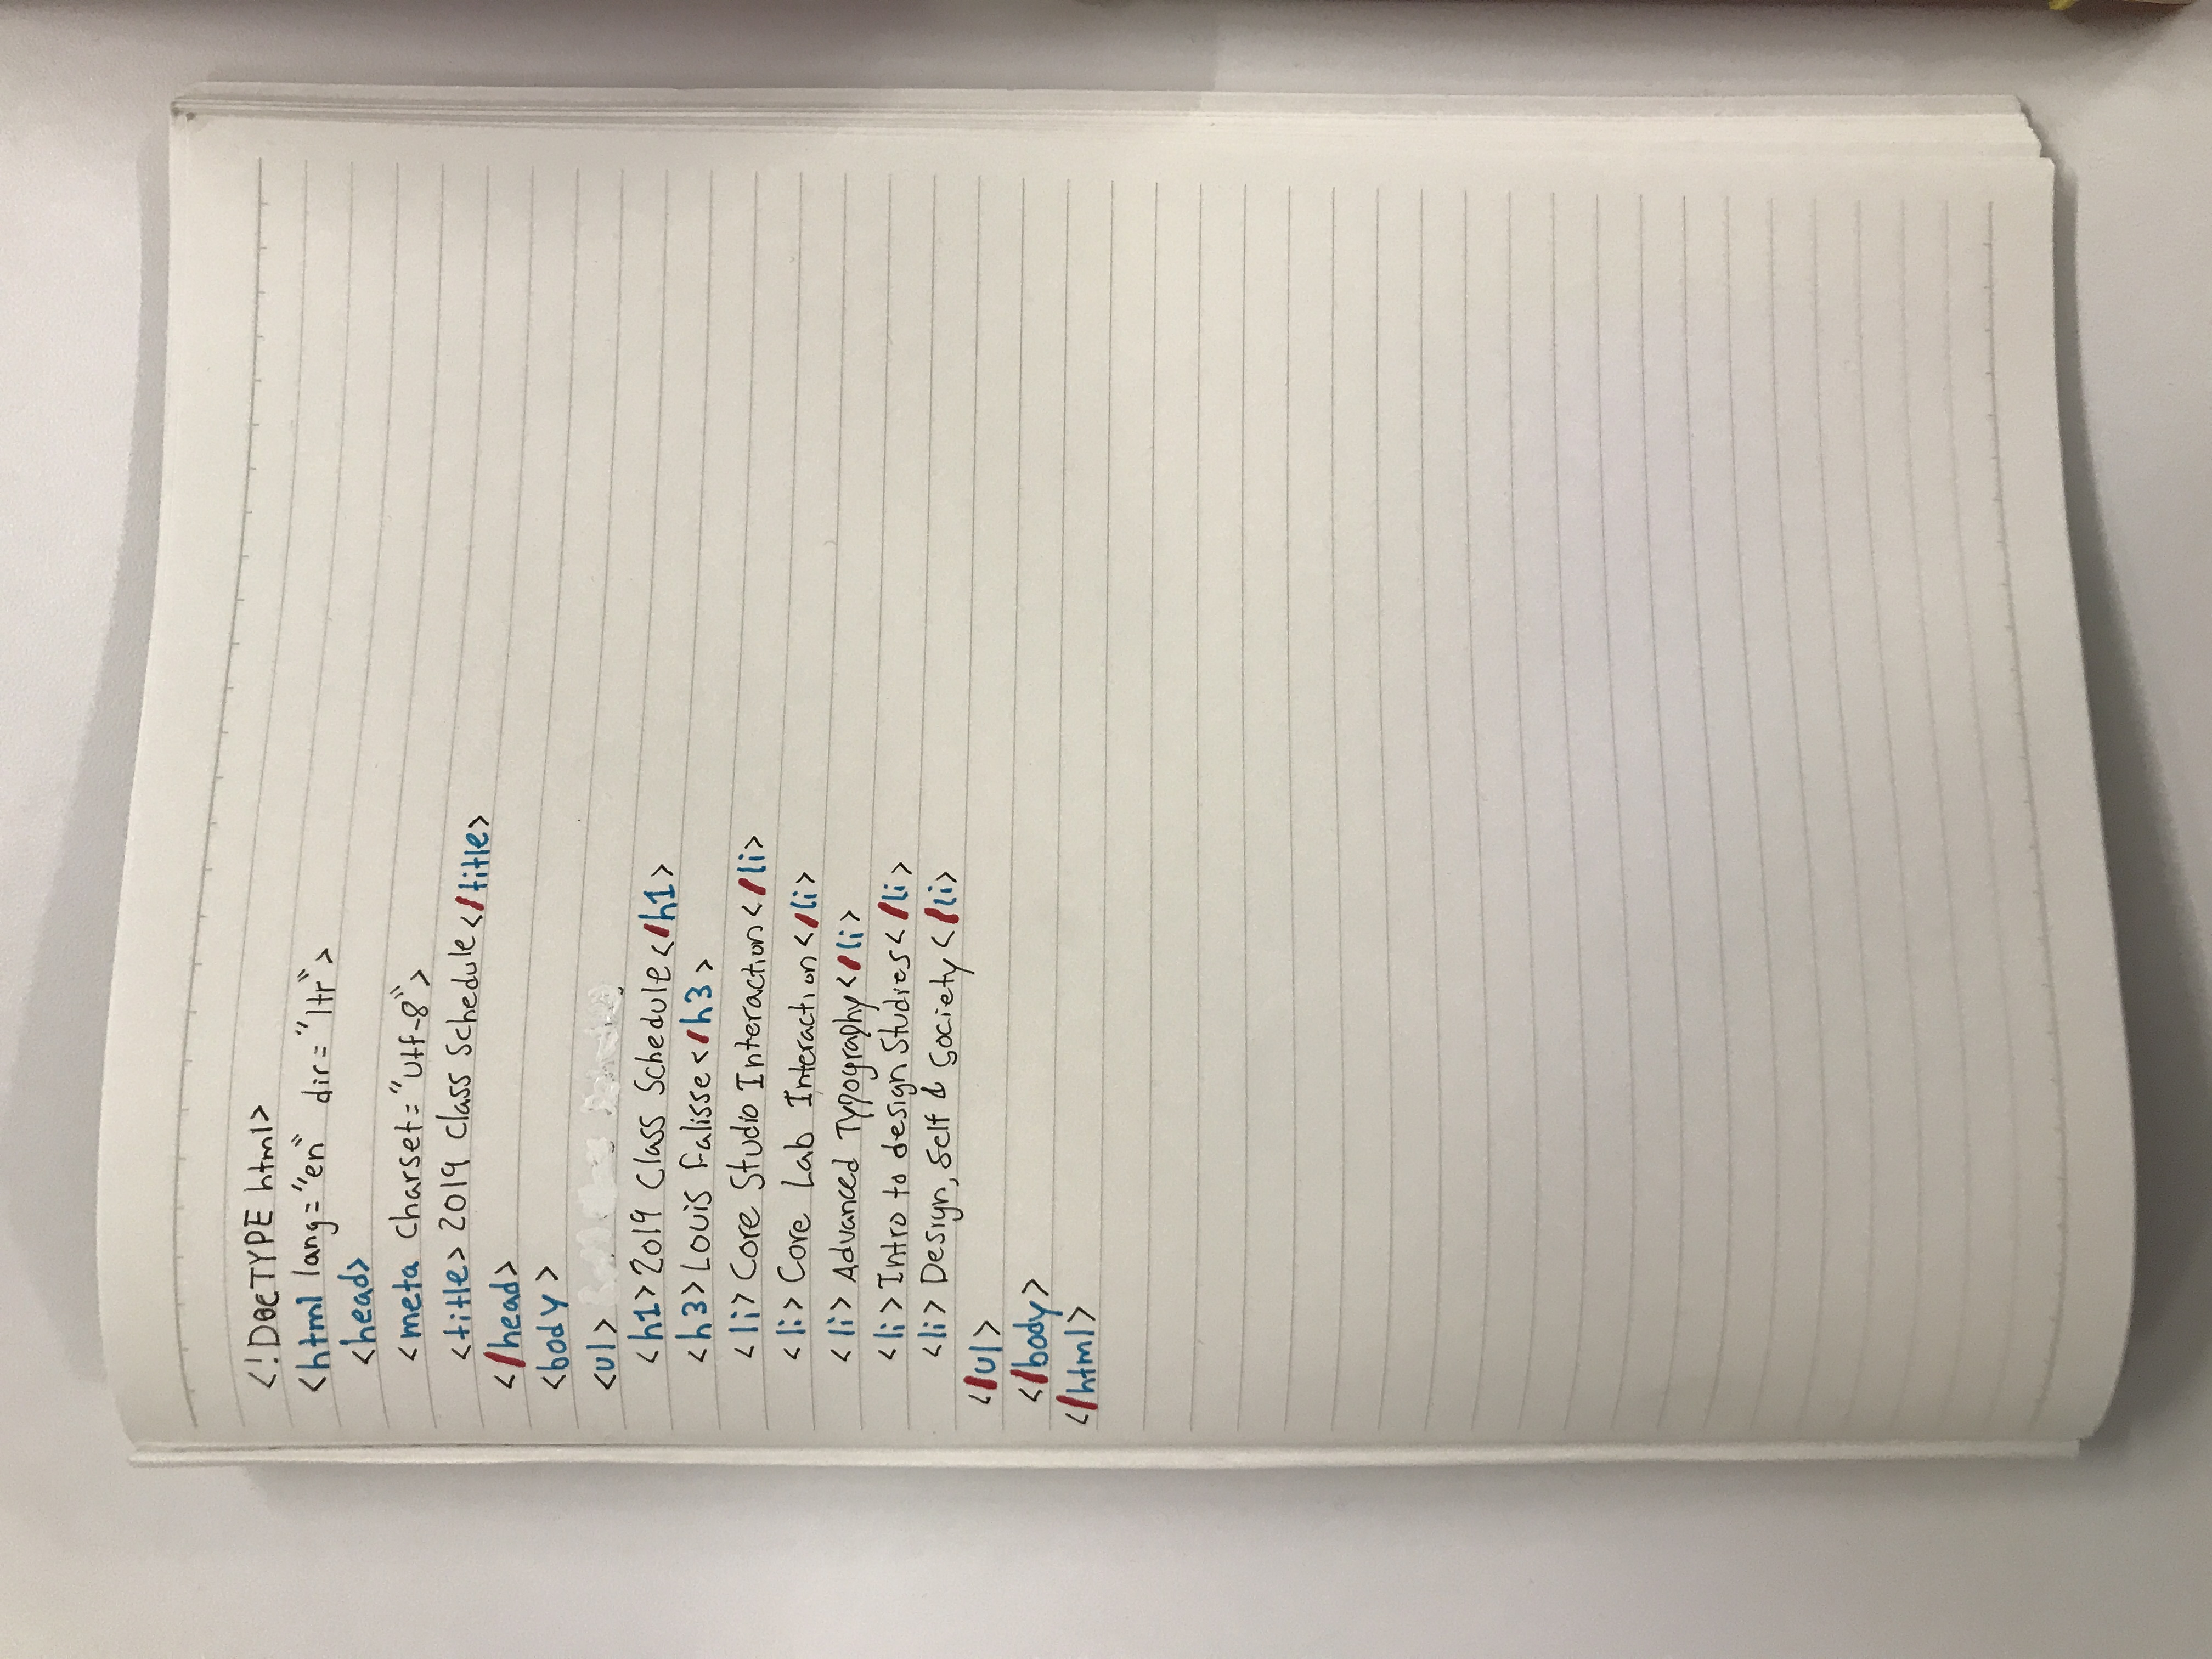 <!DOCTYPE html>
<html lang="en" dir="ltr">
<head>
<meta Charset="utf-8">
<title> 2019 Class Schedule </title>
</head>
<body>
<ul>
<h1> 2019 Class Schedule </h1>
<h3> Louis Falisse </h3>
<li> Core Studio Interaction </li>
<li> Core Lab Interaction </li>
<li> Advanced Typography </li>
<li> Intro to design Studies </li>
<li> Design, Self & Society </li>
</ul>
</body>
</html>